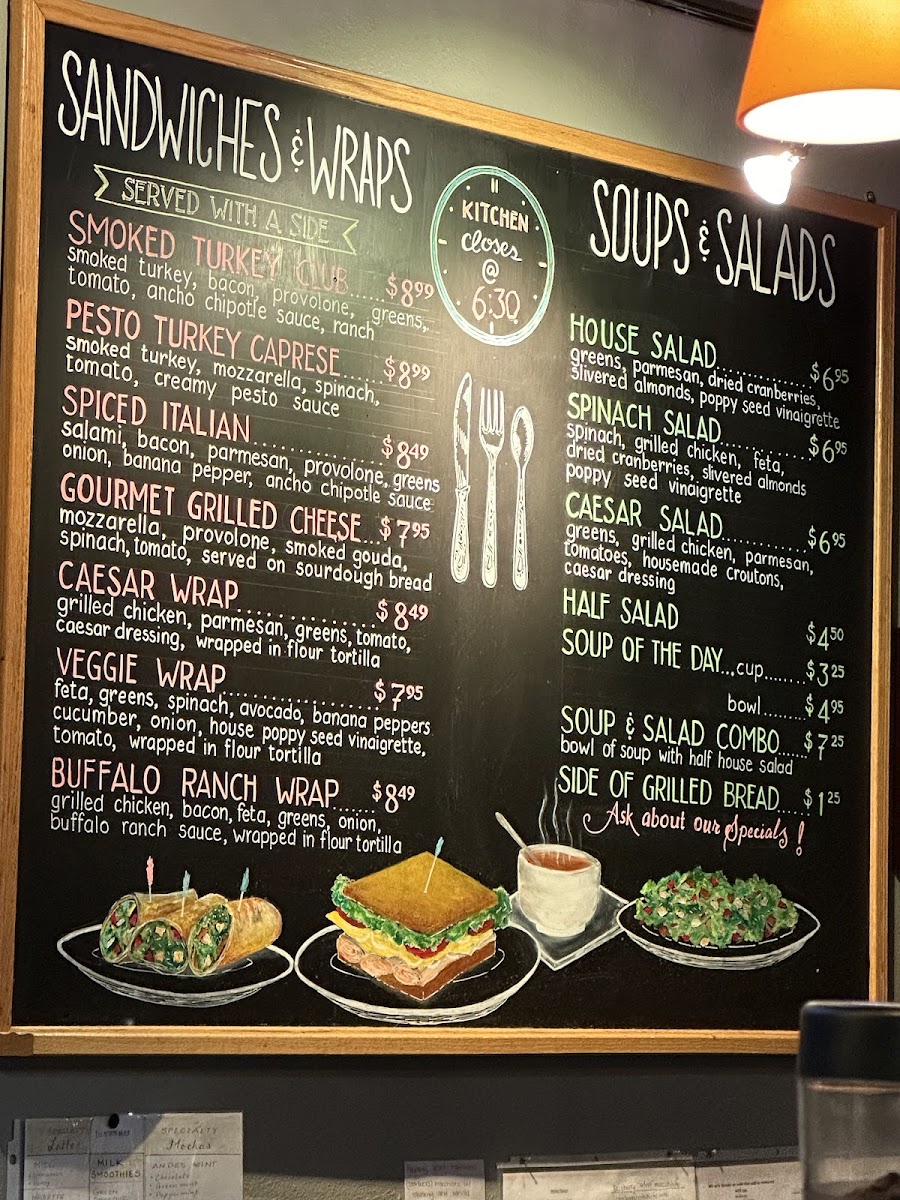 SANDWICHES & WRAPS
SERVED WITH A SIDE
SMOKED TURKEY CLUB......$8.99
smoked turkey, bacon, provolone, greens,
tomato, ancho chipotle sauce, ranch
PESTO TURKEY CAPRESE......$8.99
smoked turkey, mozzarella, spinach,
tomato, creamy pesto sauce
SPICED ITALIAN..................$8.49
salami, bacon, parmesan, provolone, greens
onion, banana pepper, ancho chipotle sauce
GOURMET GRILLED CHEESE...$7.95
mozzarella, provolone, smoked gouda,
spinach, tomato, served on sourdough bread
CAESAR WRAP..................$8.49
grilled chicken, parmesan, greens, tomato,
caesar dressing, wrapped in flour tortilla
VEGGIE WRAP....................$7.95
feta, greens, spinach, avocado, banana peppers
cucumber, onion, house poppy seed vinaigrette,
tomato, wrapped in flour tortilla
BUFFALO RANCH WRAP......$8.49
grilled chicken, bacon, feta, greens, onion,
buffalo ranch sauce, wrapped in flour tortilla
KITCHEN
closes
@
6:30
SOUPS & SALADS
HOUSE SALAD............$6.95
greens, parmesan, dried cranberries,
slivered almonds, poppy seed vinaigrette
SPINACH SALAD...........$6.95
spinach, grilled chicken, feta,
dried cranberries, slivered almonds
poppy seed vinaigrette
CAESAR SALAD...........$6.95
greens, grilled chicken, parmesan,
tomatoes, housemade croutons,
caesar dressing
HALF SALAD $4.50
SOUP OF THE DAY...cup.......$3.25
bowl........$4.95
SOUP & SALAD COMBO....$7.25
bowl of soup with half house salad
SIDE OF GRILLED BREAD....$1.25
Ask about our Specials!
Latte
MILK
SMOOTHIES
SPECIALTY
Mochas
ANDES MINT